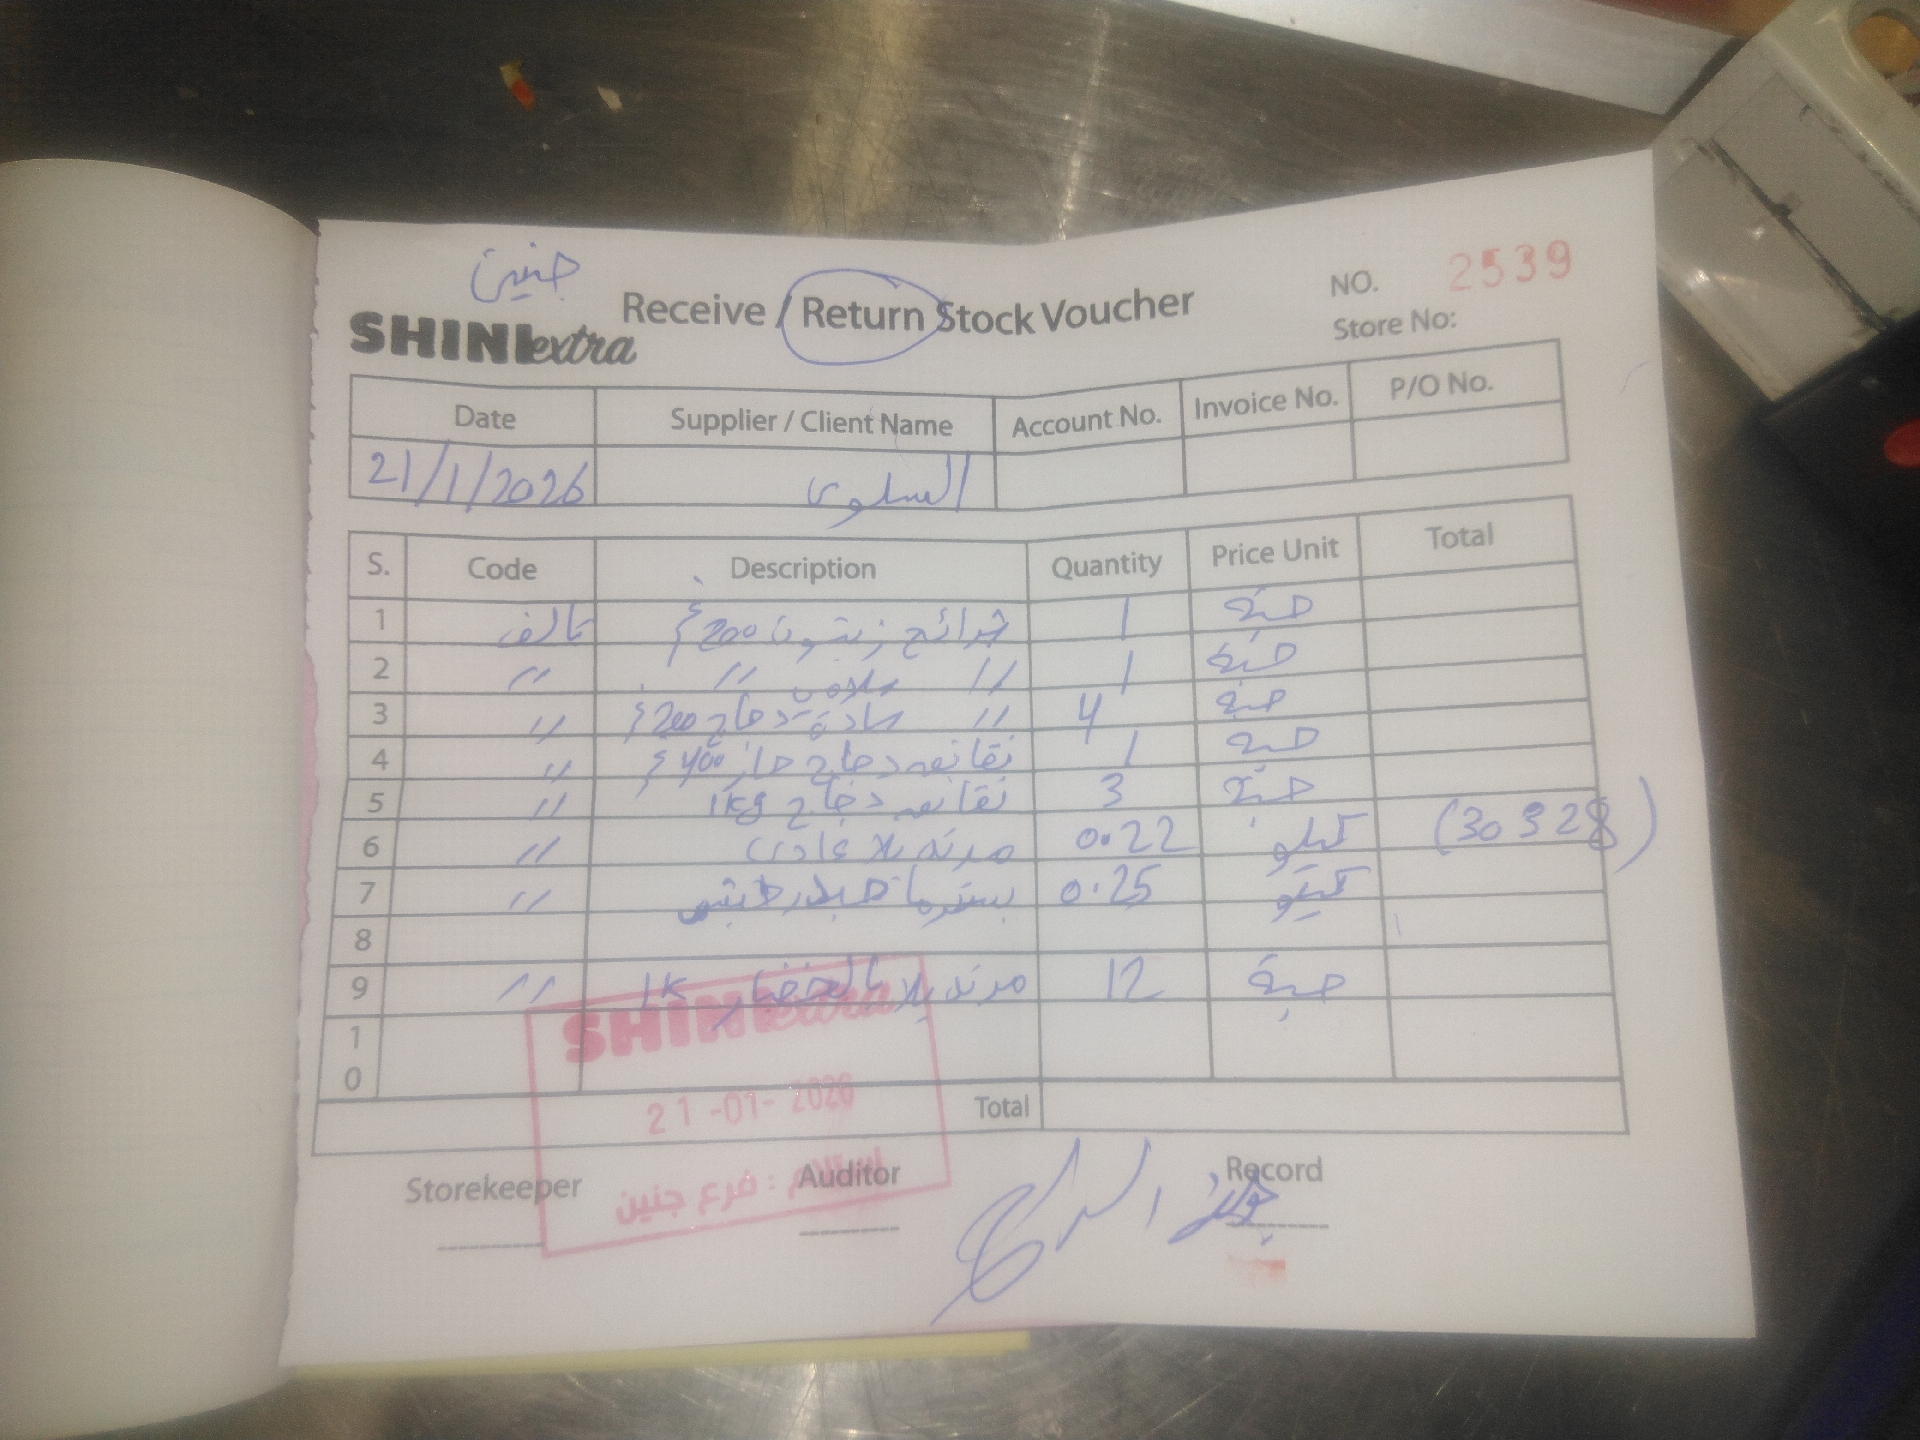 جنين
SHINI extra
Receive / Return Stock Voucher
NO. 2539
Store No:
Date Supplier / Client Name Account No. Invoice No. P/O No.
21/1/2026 السلوى
S. Code Description Quantity Price Unit Total
1 تالف شرائح زيتون 200غ 1 حبة
2 〃 〃 〃 1 حبة
3 〃 〃 دجاج 200غ 4 حبة
4 〃 نقانق دجاج حار 400غ 1 حبة
5 〃 نقانق دجاج 1kg 3 حبة
6 〃 مرتديلا عادي 0.22 كيلو (30328)
7 〃 بسترما حبش 0.25 كيلو
8
9 〃 مرتديلا بالخضار 1K 12 حبة
10
Total
SHINI extra
21-01-2026
استلام : فرع جنين
Storekeeper Auditor Record